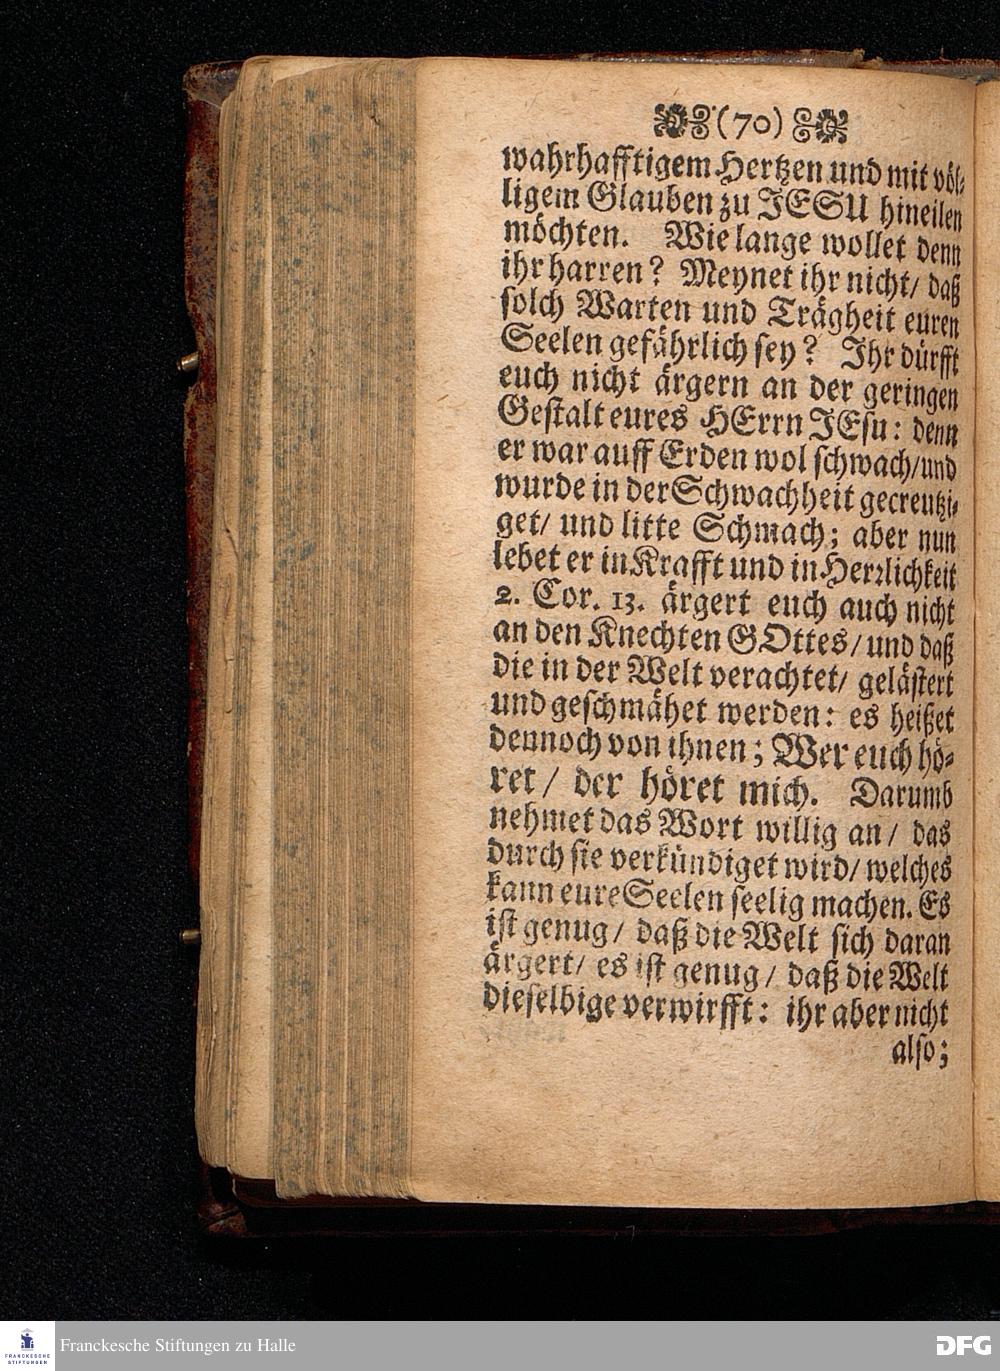 (70)
wahrhafftigem Hertzen und mit völ⸗
ligem Glauben zu JESU hineilen
möchten. Wie lange wollet denn
ihr harren? Meynet ihr nicht/ daß
solch Warten und Trägheit euren
Seelen gefährlich sey? Ihr dürfft
euch nicht ärgern an der geringen
Gestalt eures HErrn JEsu: denn
er war auff Erden wol schwach/und
wurde in der Schwachheit gecreutzi⸗
get/ und litte Schmach; aber nun
lebet er in Krafft und in Herrlichkeit
2. Cor. 13. ärgert euch auch nicht
an den Knechten GOttes/ und daß
die in der Welt verachtet/ gelästert
und geschmähet werden: es heißet
dennoch von ihnen; Wer euch hö⸗
ret/ der höret mich. Darumb
nehmet das Wort willig an/ das
durch sie verkündiget wird/ welches
kann eure Seelen seelig machen. Es
ist genug/ daß die Welt sich daran
ärgert/ es ist genug/ daß die Welt
dieselbige verwirfft: ihr aber nicht
also;
FRANCKESCHE
STIFTUNGEN
Franckesche Stiftungen zu Halle
DFG